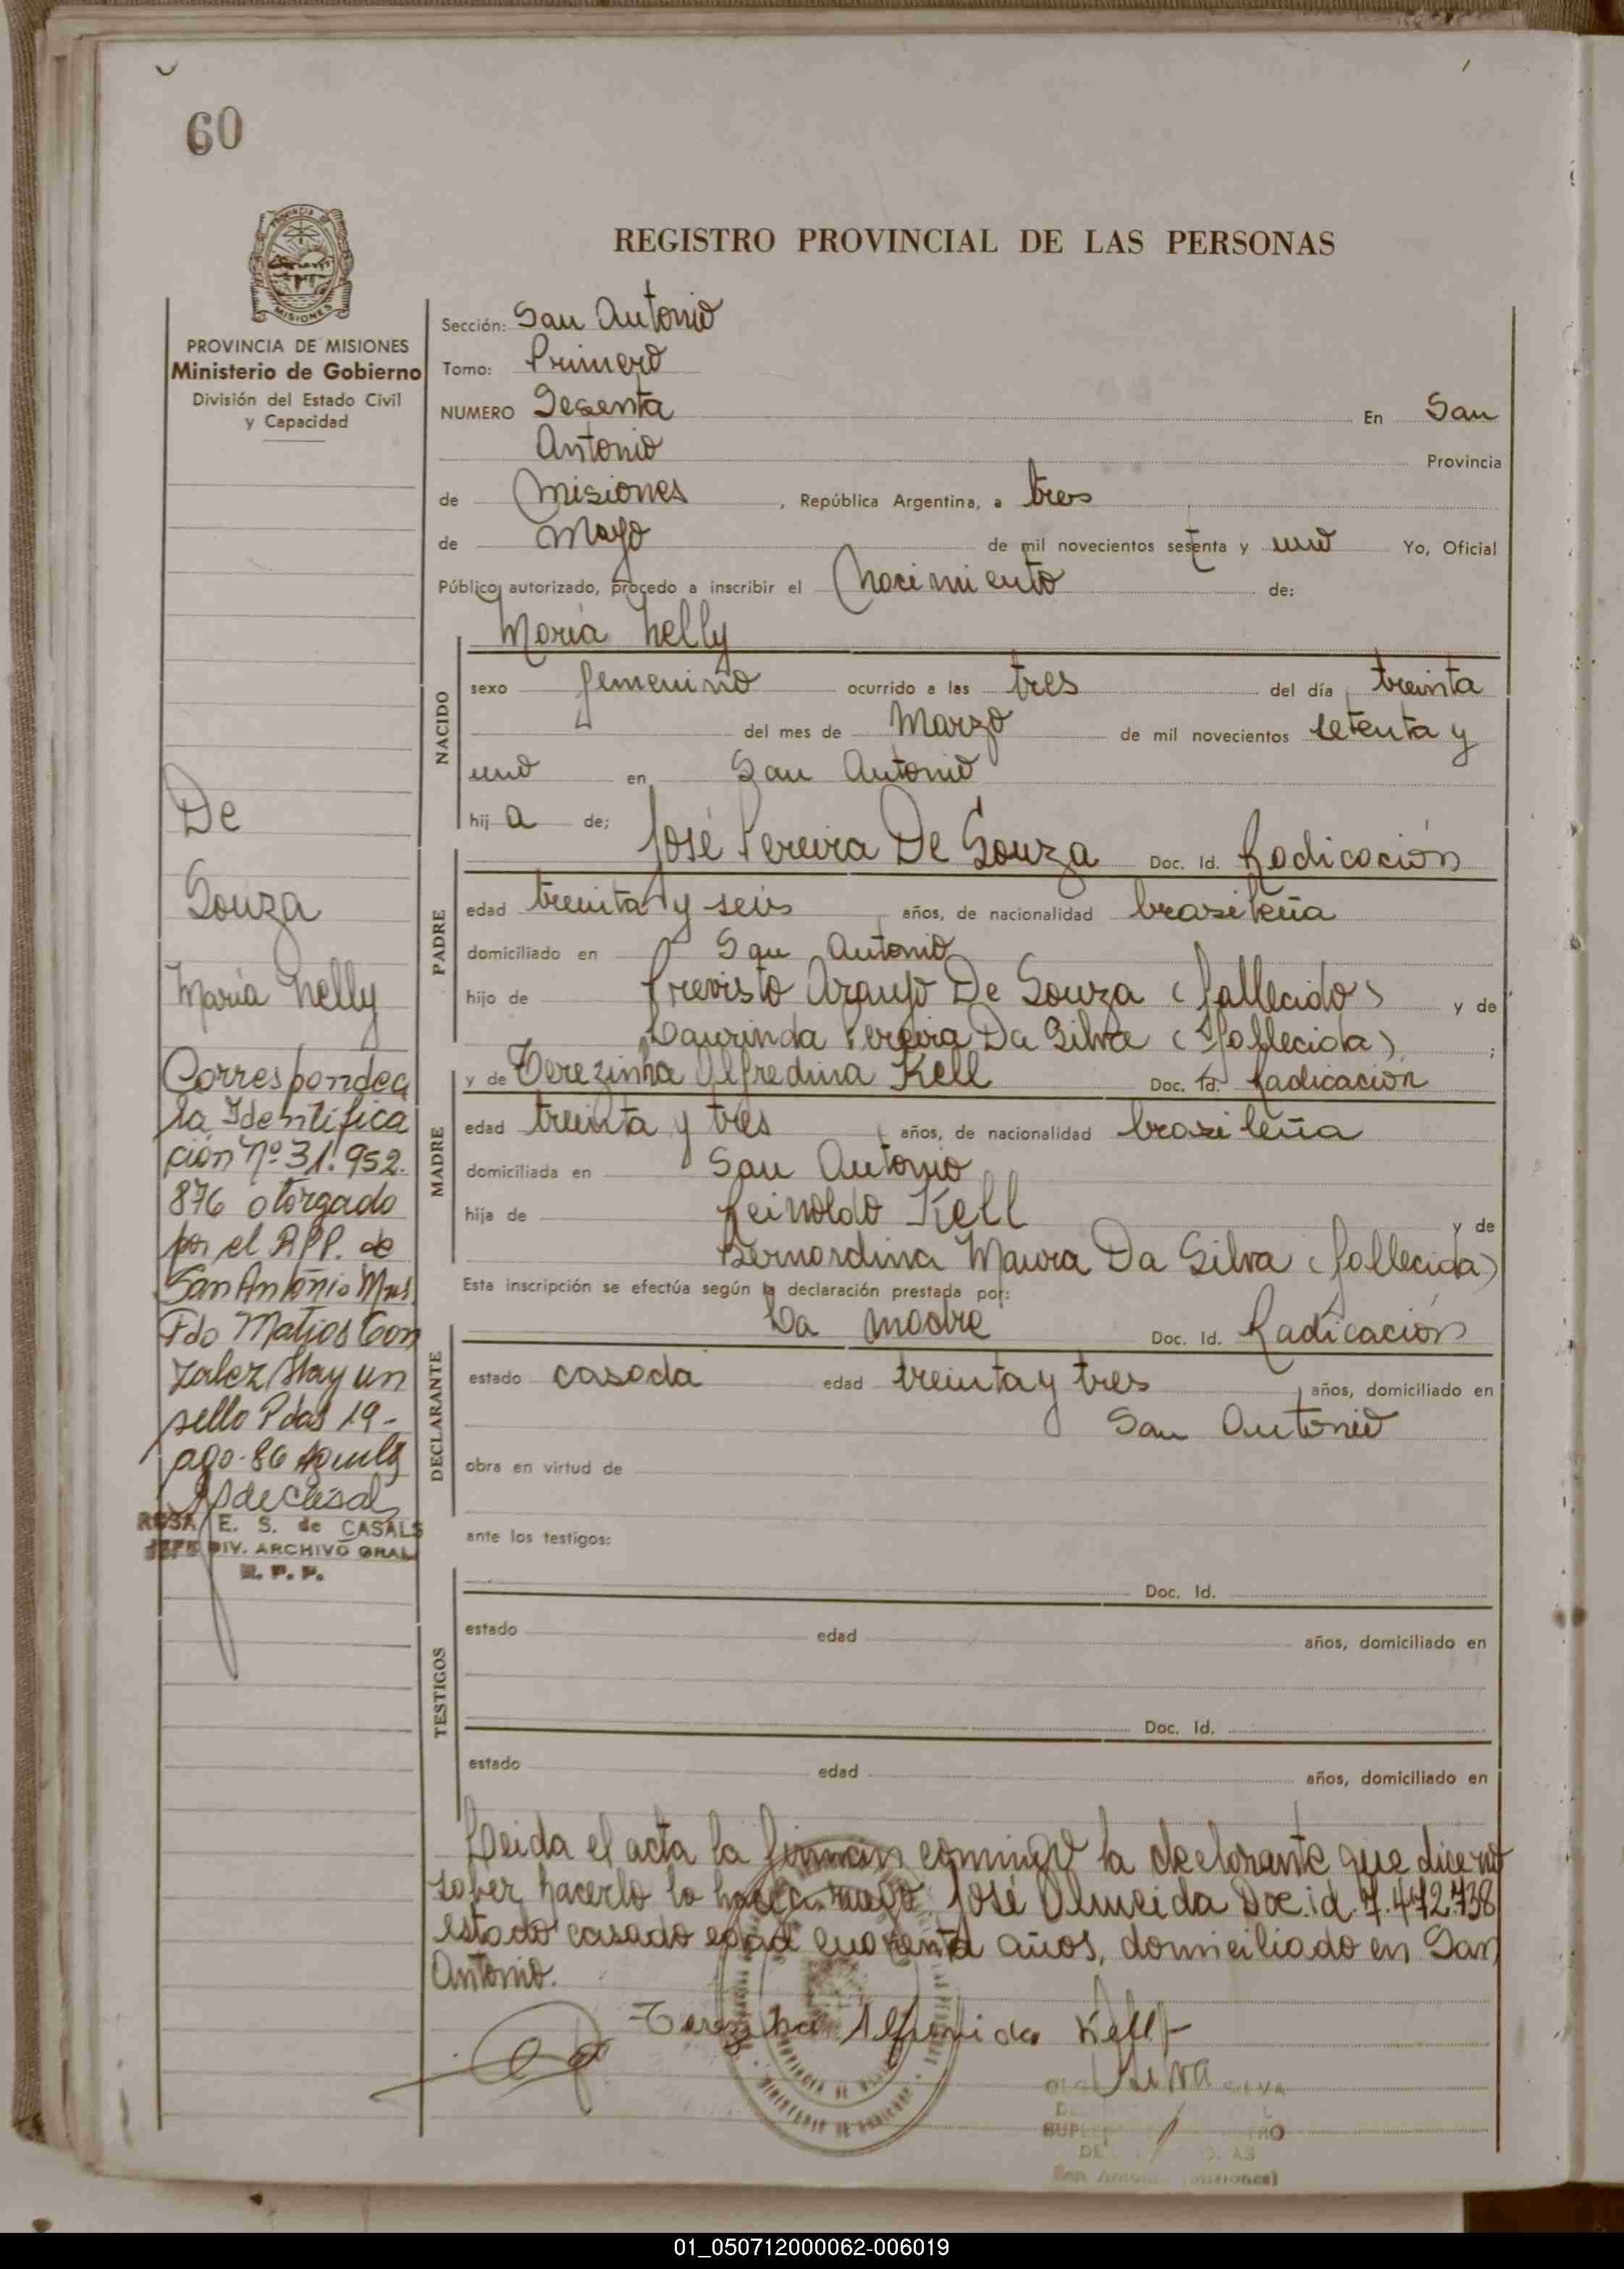 60
REGISTRO PROVINCIAL DE LAS PERSONAS
PROVINCIA DE MISIONES
MISIONES
PROVINCIA DE MISIONES
Ministerio de Gobierno
División del Estado Civil
y Capacidad
Sección: San Antonio
Tomo: Primero
NUMERO Sesenta En San
Antonio Provincia
de Misiones, República Argentina, a tres
de Mayo de mil novecientos setenta y uno Yo, Oficial
Público autorizado, procedo a inscribir el Nacimiento de:
María Nelly
NACIDO
sexo femenino ocurrido a las tres del día treinta
del mes de Marzo de mil novecientos setenta y
uno en San Antonio
hij a de;
José Pereira De Souza Doc. Id. Radicación
PADRE
edad treinta y seis años, de nacionalidad brasileña
domiciliado en San Antonio
hijo de Previsto Araujo De Souza (fallecido) y de
Laurinda Pereira Da Silva (fallecida);
y de Terezinha Alfredina Kell Doc. Id. Radicación
MADRE
edad treinta y tres años, de nacionalidad brasileña
domiciliada en San Antonio
hija de Reinoldo Kell y de
Bernardina Maura Da Silva (fallecida)
Esta inscripción se efectúa según la declaración prestada por:
La madre Doc. Id. Radicación
DECLARANTE
estado casada edad treinta y tres años, domiciliado en
San Antonio
obra en virtud de
ante los testigos:
Doc. Id.
TESTIGOS
estado edad años, domiciliado en
Doc. Id.
estado edad años, domiciliado en
Leida el acta la firman conmigo la declarante que dice no
saber hacerlo lo hace a ruego José Almeida Doc. id. 7.472.738
estado casado edad cuarenta años, domiciliado en San
Antonio.
Kell
Silva
SILVA
San Misiones)
De
Souza
María Nelly
Corresponde a
la Identifica
ción Nº 31.952.
876 otorgado
por el RPP. de
San Antonio Mnes
Fdo Matios Gon
zalez Hay un
sello Pdas 19-
ago-86
ROSA E. S. de CASALS
JEFE DIV. ARCHIVO GRAL
R. P. P.
01_050712000062-006019